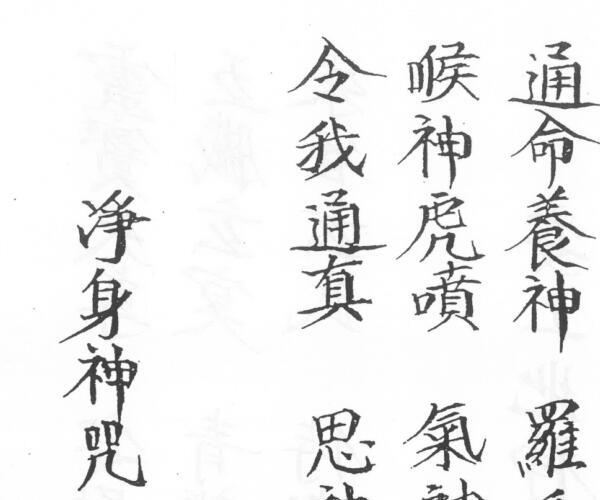 通命養神 羅
喉神虎噴 氣神
令我通真 思神
净身神咒